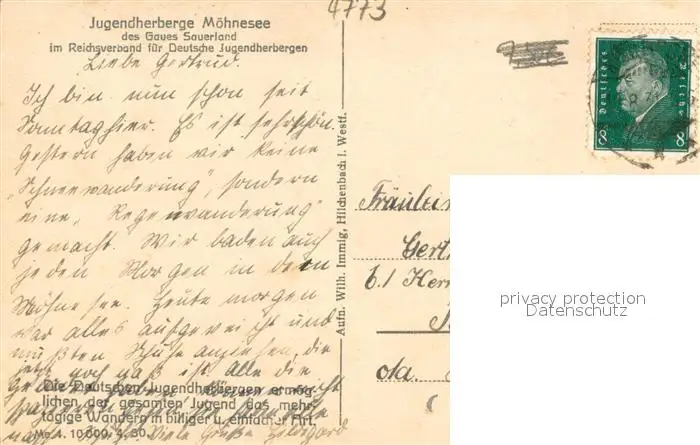 4773
Jugendherberge Möhnesee
des Gaues Sauerland
im Reichsverband für Deutsche Jugendherbergen
Liebe Gertrud.
Ich bin nun schon seit
Sonntag hier. Es ist sehr schön.
Gestern haben wir keine
„Schneewanderung", sondern
eine „Regenwanderung"
gemacht. Wir baden auch
jeden Morgen in dem
Möhnesee. Heute morgen
war alles aufgeweicht und
mußten Schuhe anziehen, die
jetzt noch naß ist. Alle die
Die Deutschen Jugendherbergen ermög-
lichen der gesamten Jugend das mehr-
tägige Wandern in billiger u. einfacher Art.
Me. A. 10 000. 4. 30.
Viele Grüße Hildegard
Aufn. Wilh. Immig, Hilchenbach i. Westf.
Deutsches Reich
8 8
Fräulein
Gert
b. / Her
da.
privacy protection
Datenschutz